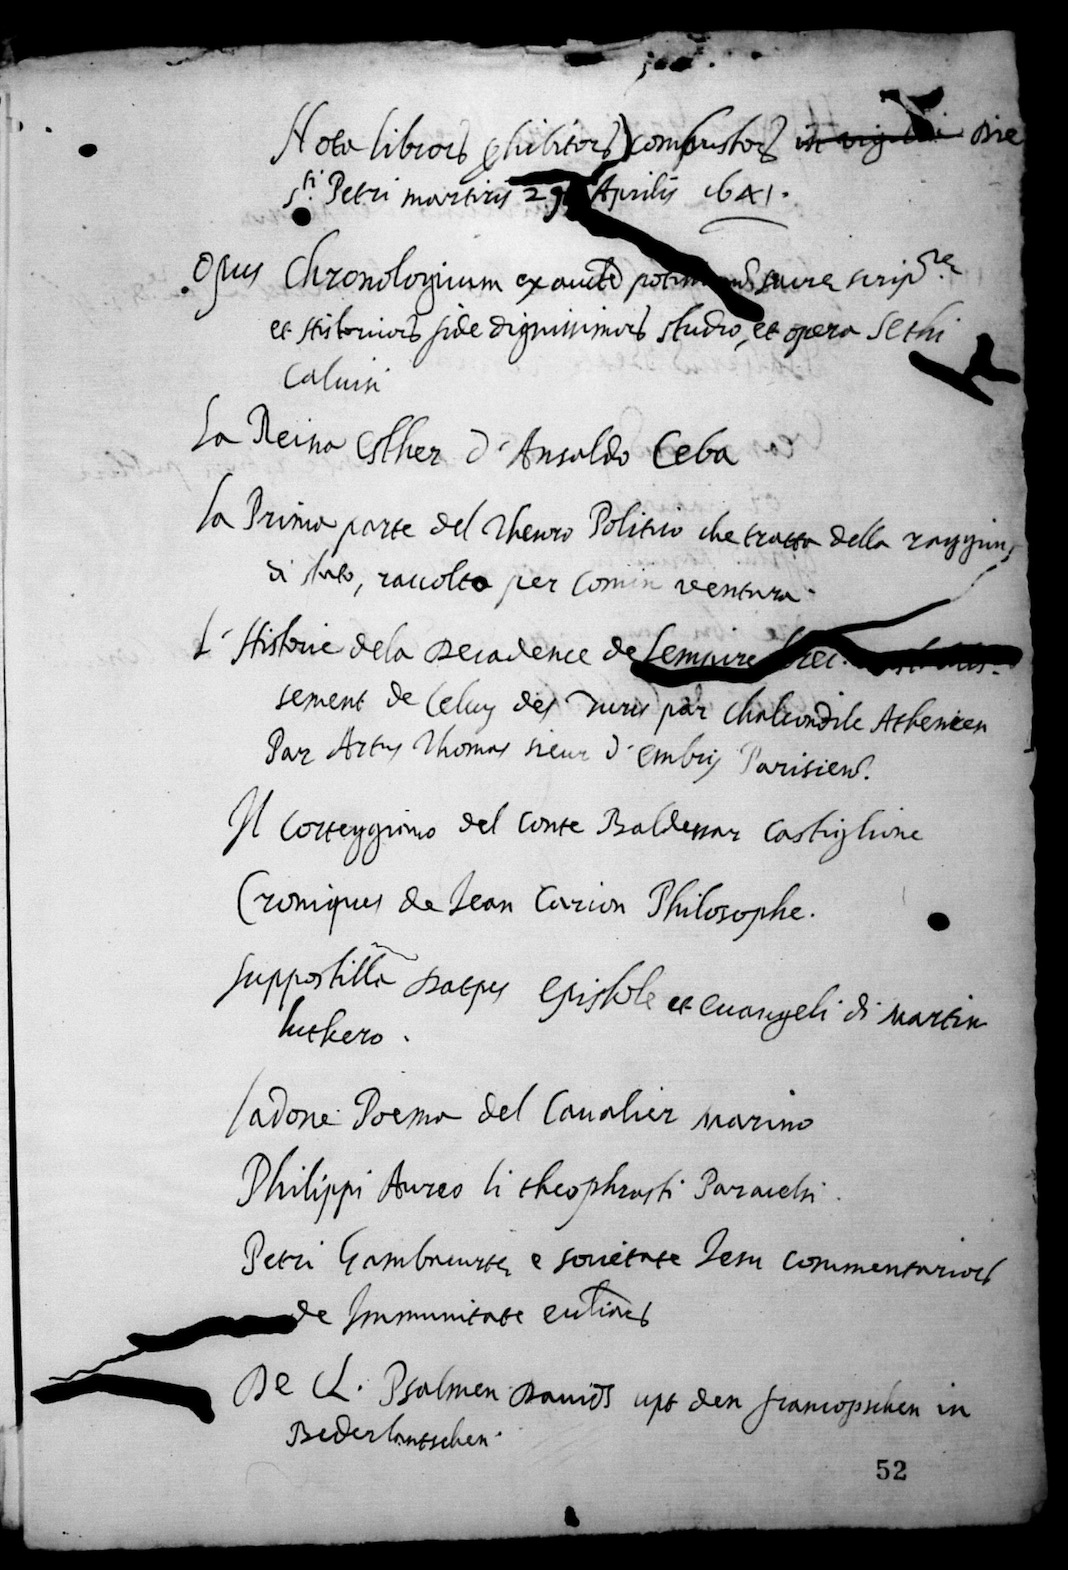 Nota librorũ phibitorũ combustorũ in vigi die
S.ti Petri martiris 29 Aprilis 1641.
Opus Chronologicum ex aucte potim sacra scrip.re
et Historicorũ fide dignissimorũ studio, et opera Sethi
Caluisi
La Reina Esther d'Ansaldo Ceba
La Prima parte del Thesoro Politico che tratta della raggion
di stato, raccolta per Comin ventura.
L'Historie dela Decadence de Lempire Grec.
sement de Celuy des Turcs par Chalcondile Athenien
Par Artus Thomas sieur d'embry Parisien.
Il Corteggiano del Conte Baldessar Castiglione
Croniques de Jean Carion Philosophe.
suppostilla epistole et euangeli di Martin
luthero.
Ladone Poema del Caualier Marino
Philippi Aureo li theophrasti Paracelsi.
Petri Gambacurta e societate Jesu Commentariorũ
de Immunitate
De CL. Psalmen Dauids upt den francopschen in
Nederlantschen.
52